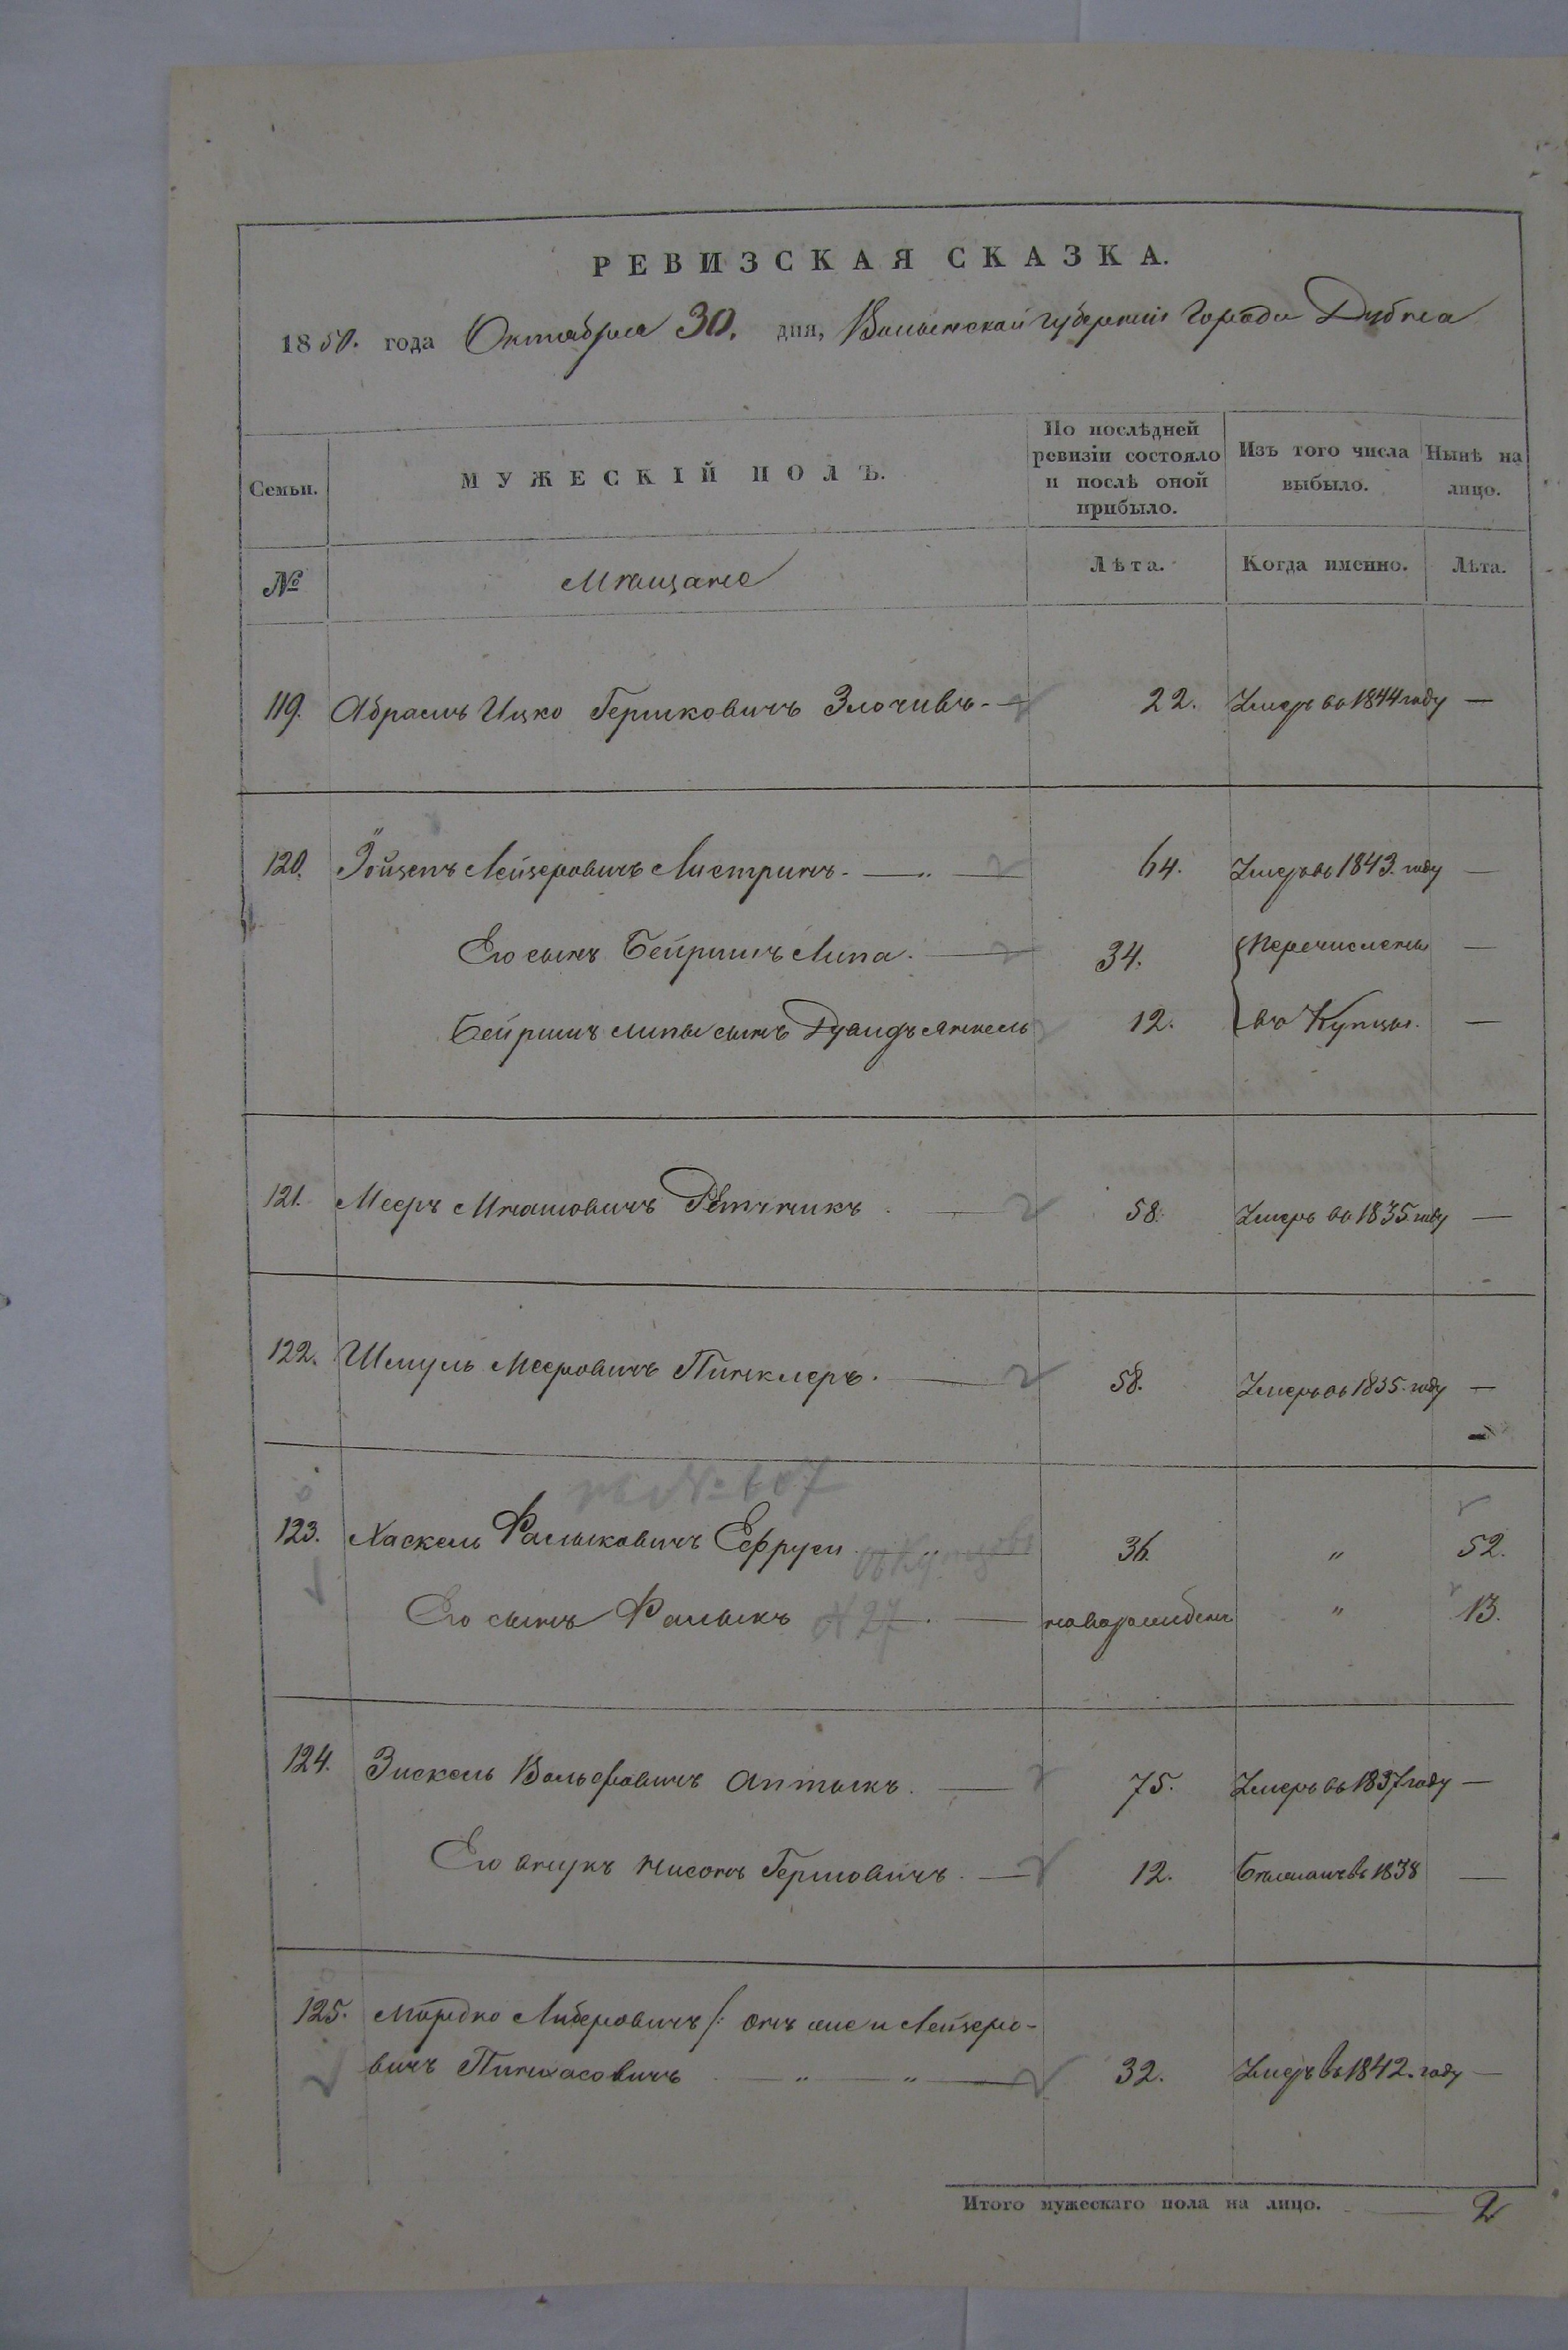 РЕВИЗСКАЯ СКАЗКА.
1850. года Октября 30. дня, Волынской губернiи Города Дубна
Семьи. МУЖЕСКIЙ ПОЛЪ. По послѣдней ревизiи состояло и послѣ оной прибыло. Изъ того числа выбыло. Нынѣ на лицо.
№ Мѣщане Лѣта. Когда именно. Лѣта.
119. Абрамъ Ицко Гершковичъ Злочивъ. — 22. Умеръ въ 1844 году —
120. Іойзепъ Лейзеровичъ Листринъ. — „ — 64. Умеръ въ 1843. году —
Его сынъ Бейришъ Липа. — 34. Перечислены —
Бейришъ Липы сынъ Дувидъ Янкель 12. въ Купцы. —
121. Мееръ Мнашовичъ Рѣтникъ. — 58. Умеръ въ 1835 году —
122. Шмуль Мееровичъ Пинклеръ. — 58. Умеръ въ 1835. году —
№ 607
123. Хаскель Фалыковичъ Ефруси. — „ — 36. „ 52.
Его сынъ Фалыкъ № 27 — новорожденъ „ 13.
124. Зискель Вольфовичъ Аптыкъ. — 75. Умеръ въ 1837 году —
Его внукъ Нисонъ Гершовичъ. — 12. Бѣжалъ въ 1838 —
125. Мордко Либеровичъ /: онъ же и Лейзеро-
вичъ Пинхасовичъ — „ — „ — 32. Умеръ въ 1842. году —
Итого мужескаго пола на лицо. — 2